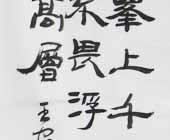 峯上千
不畏浮
髙層王